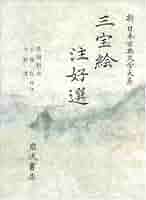 新 日本古典文学大系
三宝絵
注好選
岩波書店